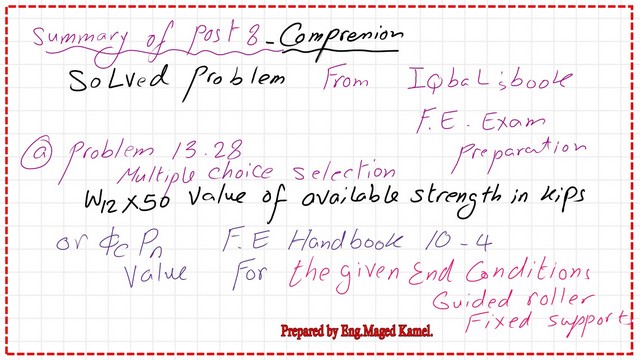 Summary of Post 8 - Compression
Solved Problem From Iqbal's book
F.E. Exam
Preparation
(a) Problem 13.28
Multiple choice selection
W12x50 Value of available strength in kips
or ϕc Pn F.E Handbook 10-4
Value For the given End Conditions
Guided roller
Fixed support
Prepared by Eng.Maged Kamel.